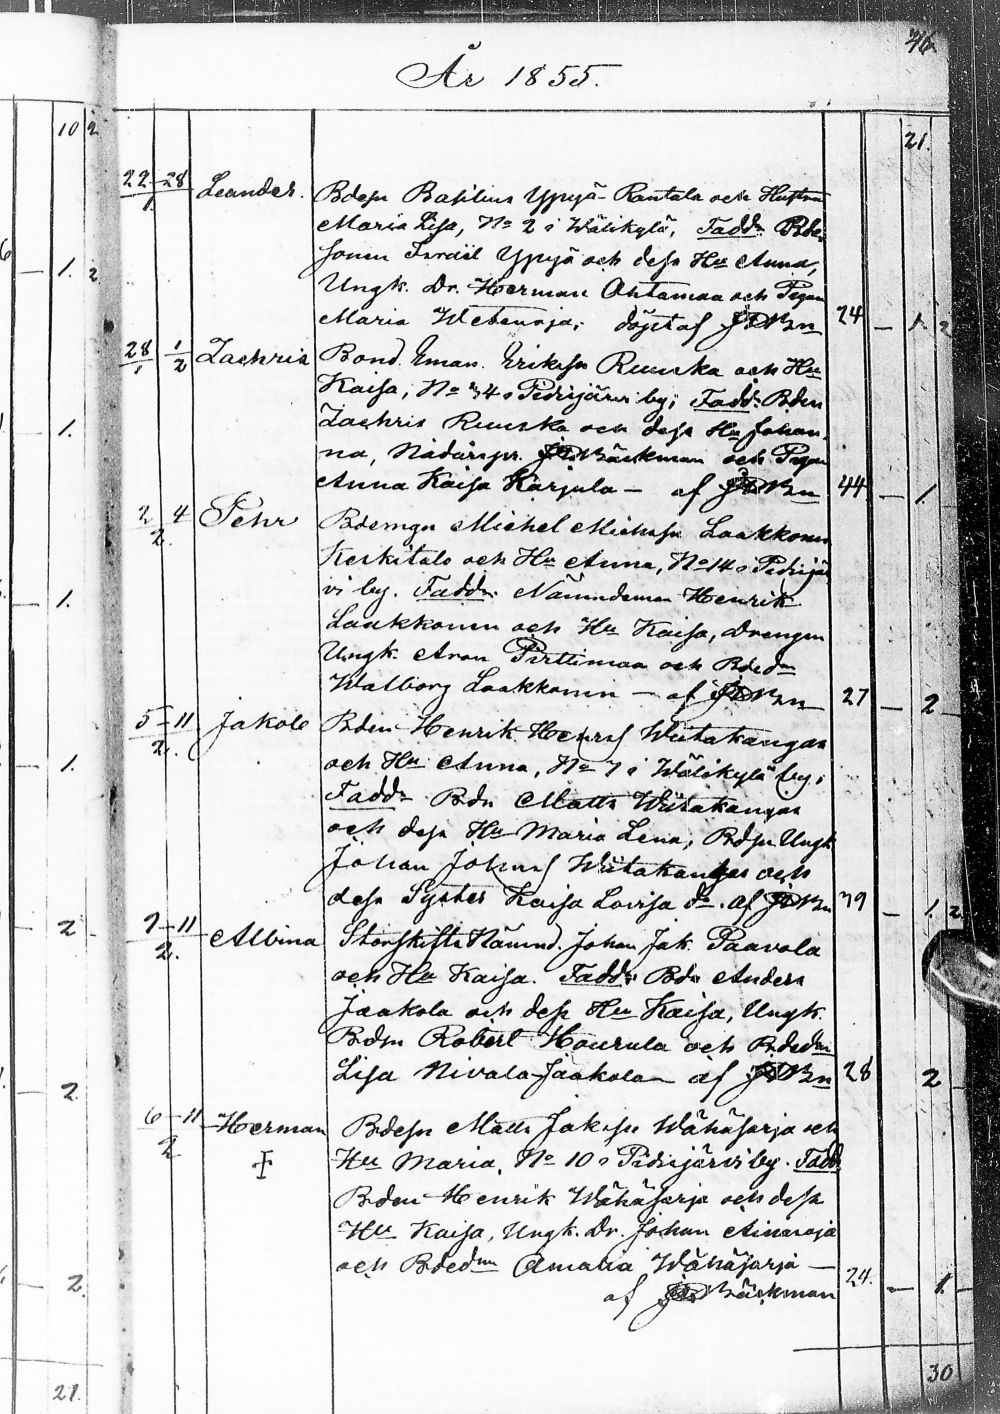 46.
År 1855.
10 2
21.
22 28 Leander. Bdesn Basilius Ypyä-Rantala och Hustrun
1
Maria Lisa, No 2 i Wälikylä, Fadd:
Israël Ypyä och dess Hu Anna,
1. 2
Ungk. Dr. Herman Ahtamaa och Pigan
Maria; döpt af 24 1 2
28 1 Zachris Bond. Eman. Erikss Ruuska och Hu
1 2
Kaisa, No 34 i Pidisjärvi by; Fadd: Bden
Zachris Ruuska och dess Hu Johan-
1.
na, Nådårspr. Bäckman och Pigan
Anna Kaisa Karjula — af 44 1
2 4 Pehr Bdemgn Michel Michelss Laakkonen
2.
Keskitalo och Hu Anna, No 14 i Pidisjär
vi by. Fadd: Nämndeman Henrik
1.
Laakkonen och Hu Kaisa, Drengen
Ungk. Aron Pirttimaa och Bdedn
Walborg Laakkonen — af 27 2
5–11 Jakob Bden Henrik Henrss Wiitakangas
2.
och Hu Anna, No 7 i Wälikylä by;
1.
Fadd: Bdn Matts Wiitakangas
och dess Hu Maria Lena, Bdsn Ungk
Johan Johnss Wiitakangas och
dess Syster Kaisa Lovisa do. af 39 1 2
7–11 Albina Storskifts Nämnd. Johan Jak. Paavola
2.
2
och Hu Kaisa. Fadd: Bdn Anders
Jaakola och dess Hu Kaisa, Ungk.
Bdsn Robert Hourula och Bdedn
Lisa Nivala-Jaakola — af 28 2
2
6–11 Herman Bdesn Matts Jakss Wähäsarja och
2
Hu Maria, No 10 i Pidisjärvi by. Fadd:
Bden Henrik Wähäsarja och dess
Hu Kaisa, Ungk. Dr. Johan Ainasoja
och Bdedn Amalia Wähäsarja —
2. 24. 1.
af Bäckman
30
21.